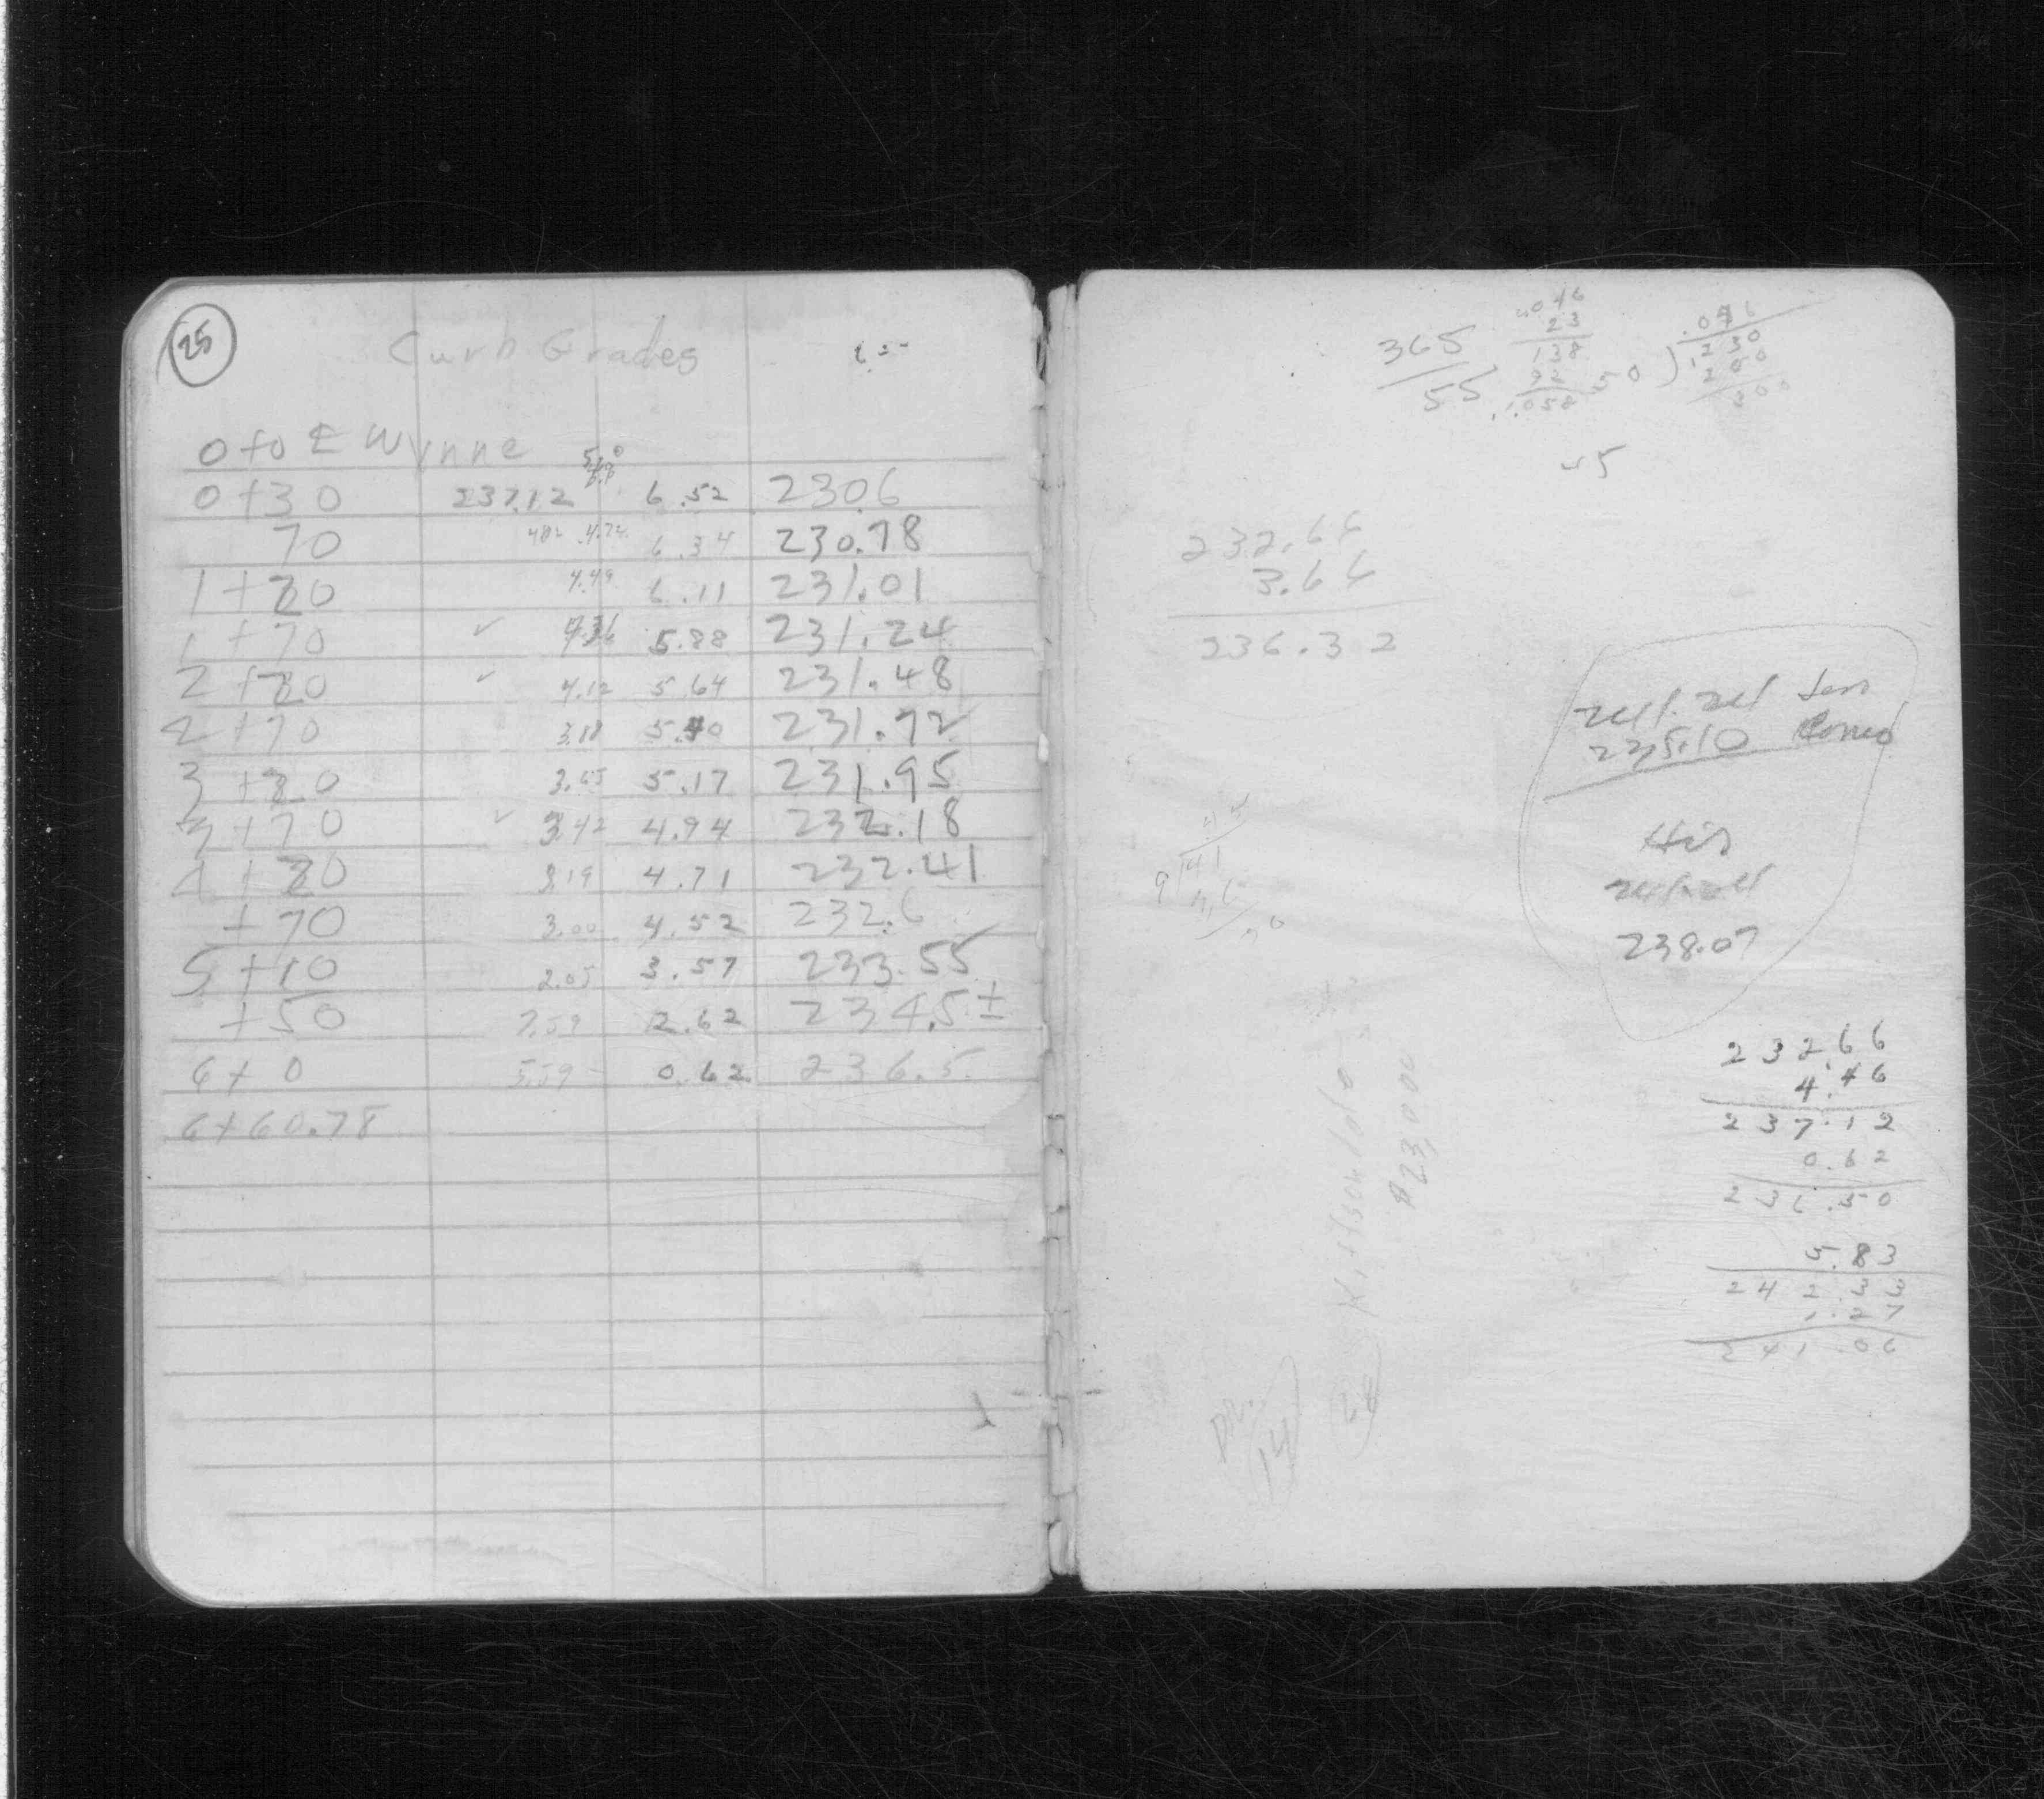 25
Curb Grades
0+0 ℄ Wynne
0+30 237.12 6.52 230.6
70 4.82 4.74 6.34 230.78
1+20 4.49 6.11 231.01
1+70 ✓ 4.36 5.88 231.24
2+20 ✓ 4.12 5.64 231.48
2+70 3.88 5.40 231.72
3+20 3.65 5.17 231.95
3+70 ✓ 3.42 4.94 232.18
4+20 3.19 4.71 232.41
+70 3.00 4.52 232.6
5+10 2.05 3.57 233.55
+50 7.59 2.62 234.5±
6+0 5.59 0.62 236.5
6+60.78
365
55
.046
23
138
92
1.058
50 ) 1230
200
300
45
232.66
3.66
236.32
235.10
His
238.07
9
41
$23,000
14
26
232.66
4.46
237.12
0.62
236.50
5.83
242.33
1.27
241.06